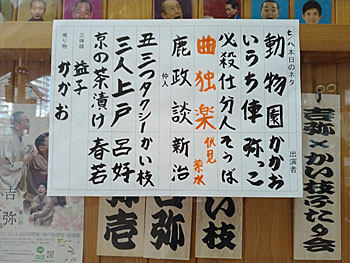 七/八本日のネタ 出演者
動物園 かかお
いらち俥 弥っこ
必殺仕分人 そうば
曲独楽 伏見紫水
仲入
鹿政談 新治
丑三つタクシー かい枝
三人上戸 呂好
京の茶漬け 春若
三味線 益子
鳴り物 かかお
吉弥×かい枝ふたり会
かい枝
吉弥
弥壱
吉弥